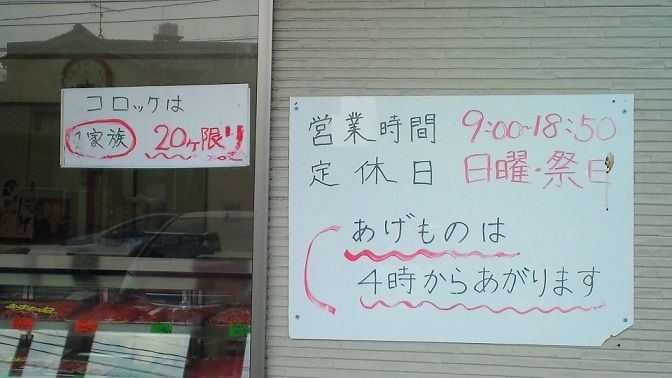 コロッケは
1家族 20ヶ限り
営業時間 9:00~18:50
定休日 日曜・祭日
あげものは
4時からあがります